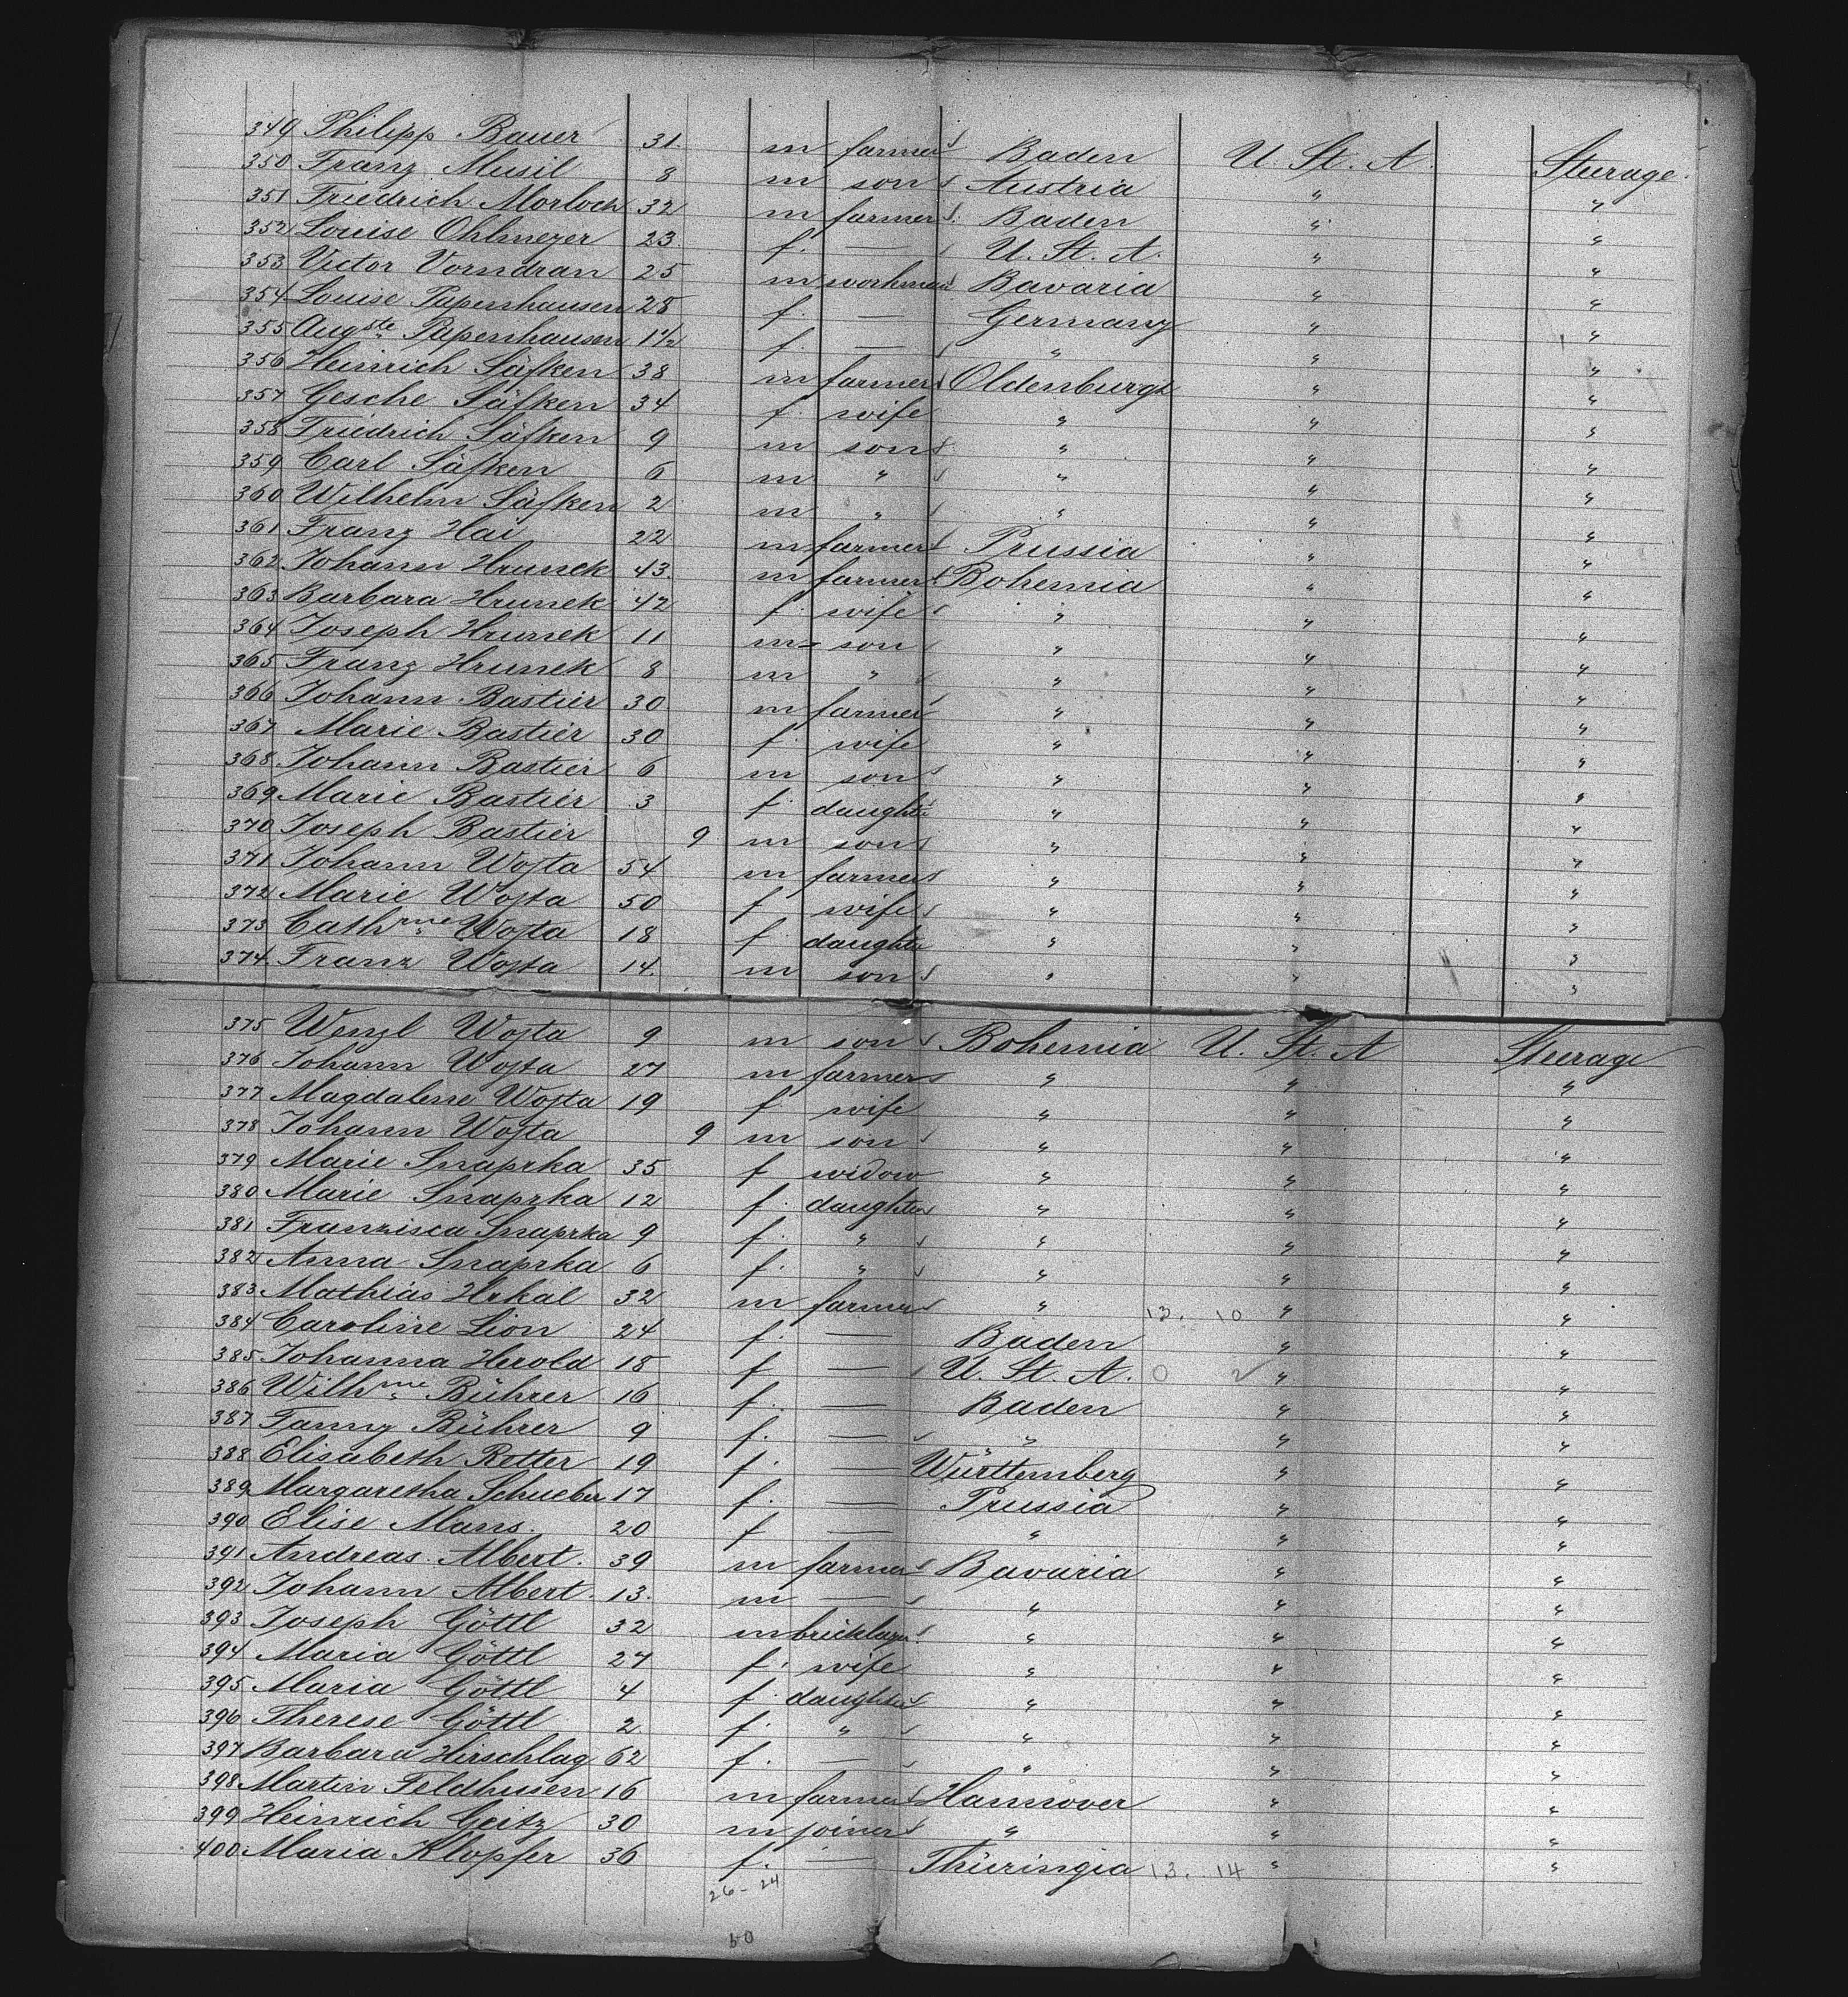 349 Philipp Bauer 31. m farmer Baden U. St. A. Steerage.
350 Franz Musil 8 m son Austria " "
351 Friedrich Morloch 32 m farmer Baden " "
352 Louise Ohlmeyer 23. f. — U. St. A. " "
353 Victor Vorndran 25 m workman Bavaria " "
354 Louise Papenhausen 28 f. — Germany " "
355 Augste Papenhausen 1 1/2 f. — " " "
356 Heinrich Säfken 38 m farmer Oldenburg " "
357 Gesche Säfken 34 f. wife " " "
358 Friedrich Säfken 9 m son " " "
359 Carl Säfken 6 m " " " "
360 Wilhelm Säfken 2 m " " " "
361 Franz Hai 22 m farmer Prussia " "
362 Johann Hrunek 43. m farmer Bohemia " "
363 Barbara Hrunek 42 f. wife " " "
364 Joseph Hrunek 11 m son " " "
365 Franz Hrunek 8 m " " " "
366 Johann Bastier 30 m farmer " " "
367 Marie Bastier 30 f. wife " " "
368 Johann Bastier 6 m son " " "
369 Marie Bastier 3 f. daughter " " "
370 Joseph Bastier 9 m son " " "
371 Johann Wojta 54 m farmer " " "
372 Marie Wojta 50 f wife " " "
373 Cathrne Wojta 18 f. daughter " " "
374. Franz Wojta 14. m son " " "
375 Wenzl Wojta 9 m son Bohemia U. St. A Steerage
376 Johann Wojta 27 m farmer " " "
377 Magdalene Wojta 19 f. wife " " "
378 Johann Wojta 9 m son " " "
379 Marie Snaprka 35 f widow " " "
380 Marie Snaprka 12 f. daughter " " "
381 Franzisca Snaprka 9 f. " " " "
382 Anna Snaprka 6 f. " " " "
383 Mathias Hrkal 32 m farmer " 13. 10 " "
384 Caroline Lion 24 f. — Baden " "
385 Johanna Herold 18 f — U. St. A. 0 2 " "
386 Wilhme Bührer 16 f. — Baden " "
387 Fanny Bührer 9 f. — " " "
388 Elisabeth Rotter 19 f. — Württemberg " "
389 Margaretha Schueber 17 f. — Prussia " "
390 Elise Mans. 20 f — " " "
391 Andreas Albert. 39 m farmer Bavaria " "
392 Johann Albert. 13. m — " " "
393 Joseph Göttl 32 m bricklayer " " "
394 Maria Göttl 27 f. wife " " "
395 Maria Göttl 4 f. daughter " " "
396 Therese Göttl 2 f. " " " "
397 Barbara Hirschlag 62 f. — " " "
398 Martin Feldhusen 16 m farmer Hannover " "
399 Heinrich Geitz 30 m joiner " " "
400. Maria Klopfer 36 f. — Thüringia 13. 14 " "
26 - 24
50